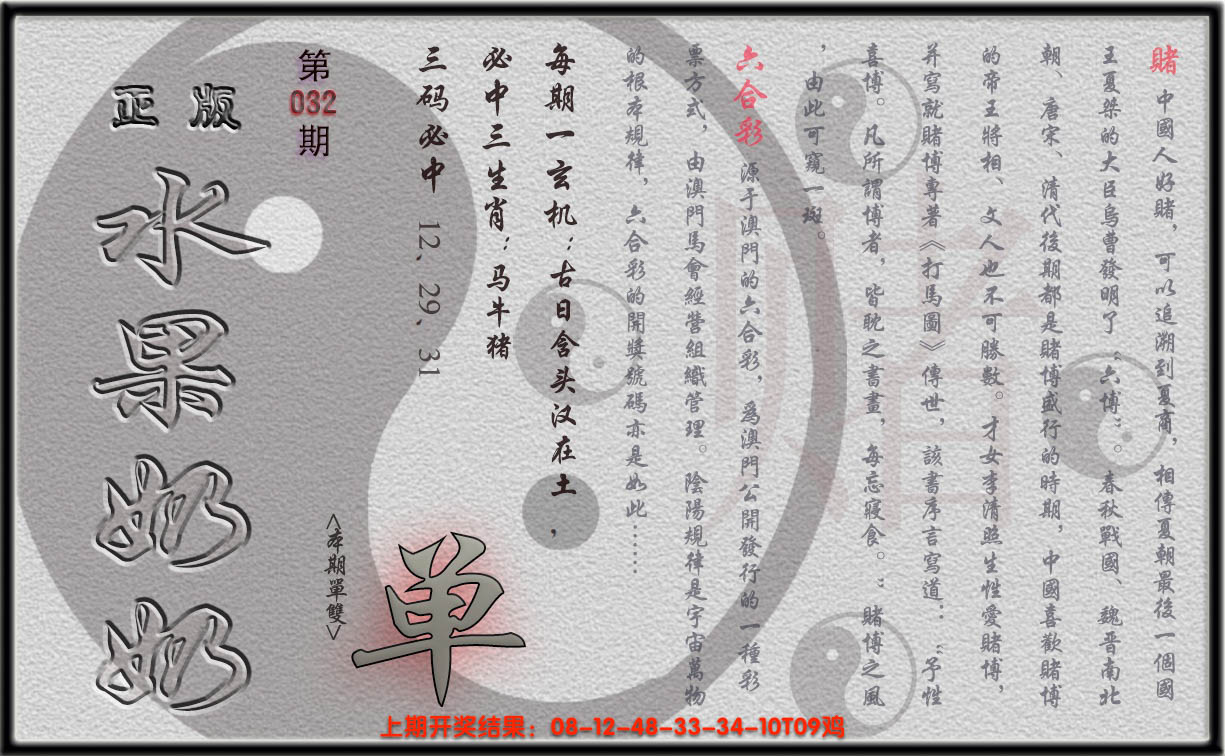 賭 中國人好賭，可以追溯到夏商，相傳夏朝最後一個國
王夏桀的大臣烏曹發明了“六博”。春秋戰國、魏晋南北
朝、唐宋、清代後期都是賭博盛行的時期，中國喜歡賭博
的帝王將相、文人也不可勝數。才女李清照生性愛賭博，
并寫就賭博專著《打馬圖》傳世，該書序言寫道：“予性
喜博。凡所謂博者，皆耽之書畫，每忘寢食。”賭博之風
，由此可窺一斑。
六合彩 源于澳門的六合彩，爲澳門公開發行的一種彩
票方式，由澳門馬會經營組織管理。陰陽規律是宇宙萬物
的根本規律，六合彩的開獎號碼亦是如此……
每期一玄机：古日含头汉在土，
必中三生肖：马牛猪
三码必中 12、29、31
第
032
期
正版
水果奶奶
<本期單雙>
单
赌
上期开奖结果：08-12-48-33-34-10T09鸡